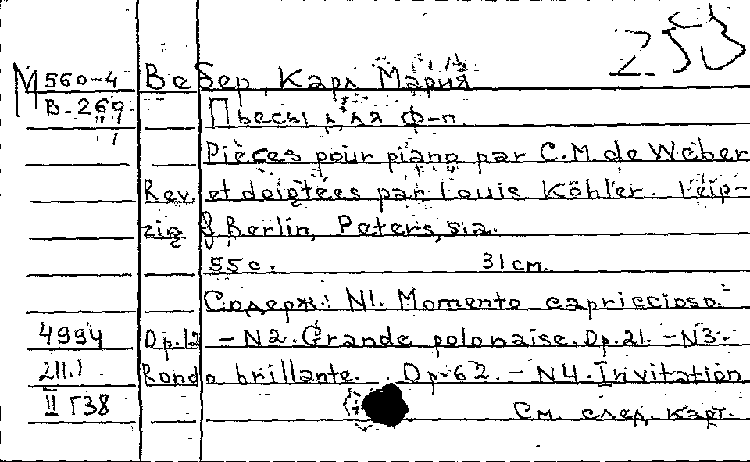 253
М 560-4 Вебер, Карл Мария
В-269 Пьесы для ф-п.
Pièces pour piano par C.M. de Weber
Rev. et doigtées par Louis Köhler. Leip-
zig & Berlin, Peters, s.a.
55 с. 31 см.
Содерж.: N1. Momento capriccioso.
4994 Op.12 - N2. Grande polonaise. Op.21. - N3.
Rondo brillante. Op.62. - N4. Invitation
II Г38 См. след. карт.